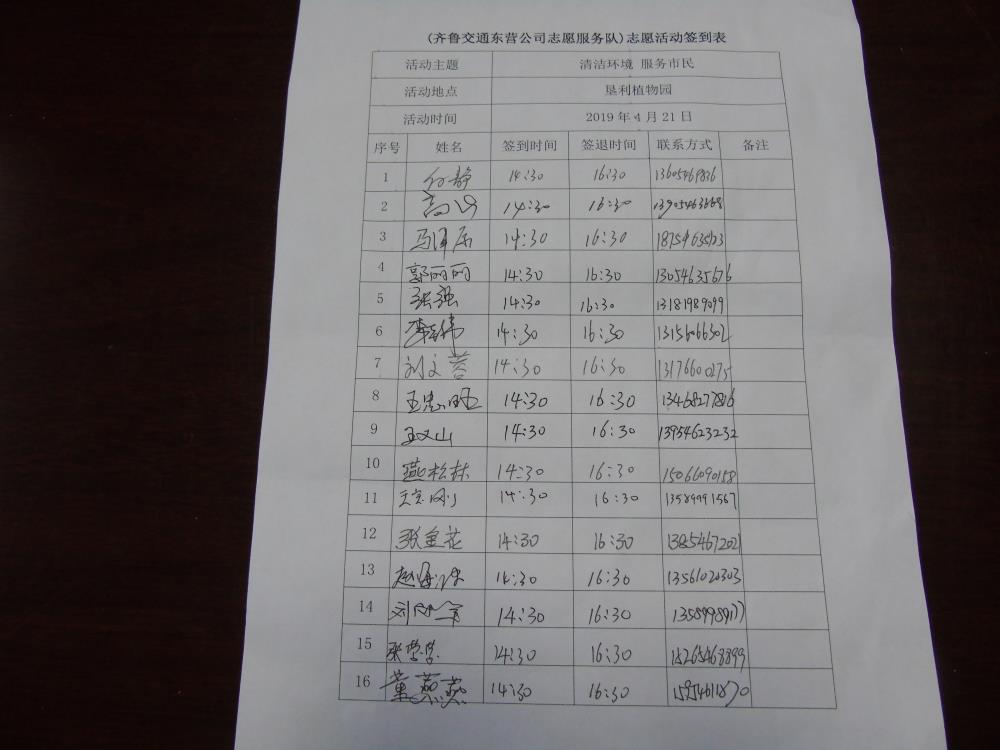 (齐鲁交通东营公司志愿服务队)志愿活动签到表
活动主题 清洁环境 服务市民
活动地点 垦利植物园
活动时间 2019年4月21日
序号 姓名 签到时间 签退时间 联系方式 备注
1 何静 14:30 16:30
2 14:30 16:30
3 14:30 16:30
4 郭丽丽 14:30 16:30 13054635676
5 张强 14:30 16:30 13181989099
6 14:30 16:30 13156066302
7 刘文蓉 14:30 16:30 13176600275
8 14:30 16:30 13468277816
9 王文山 14:30 16:30 13954623232
10 燕松林 14:30 16:30 15066090158
11 14:30 16:30 13589991567
12 张金花 14:30 16:30 13854672021
13 14:30 16:30 13561020303
14 14:30 16:30
15 14:30 16:30 15265468899
16 董燕燕 14:30 16:30